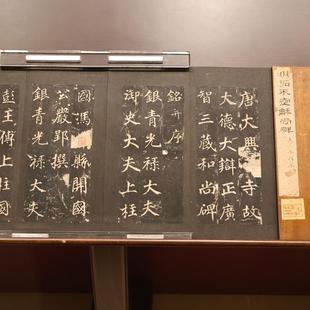 唐大興善寺故
大德大辯正廣
智三藏和尚碑
銘并序
銀青光祿大夫
御史大夫上柱
國馮翊縣開國
公嚴郢撰
銀青光祿大夫
彭王傅上柱國